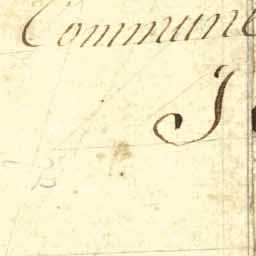 Commune
J
B